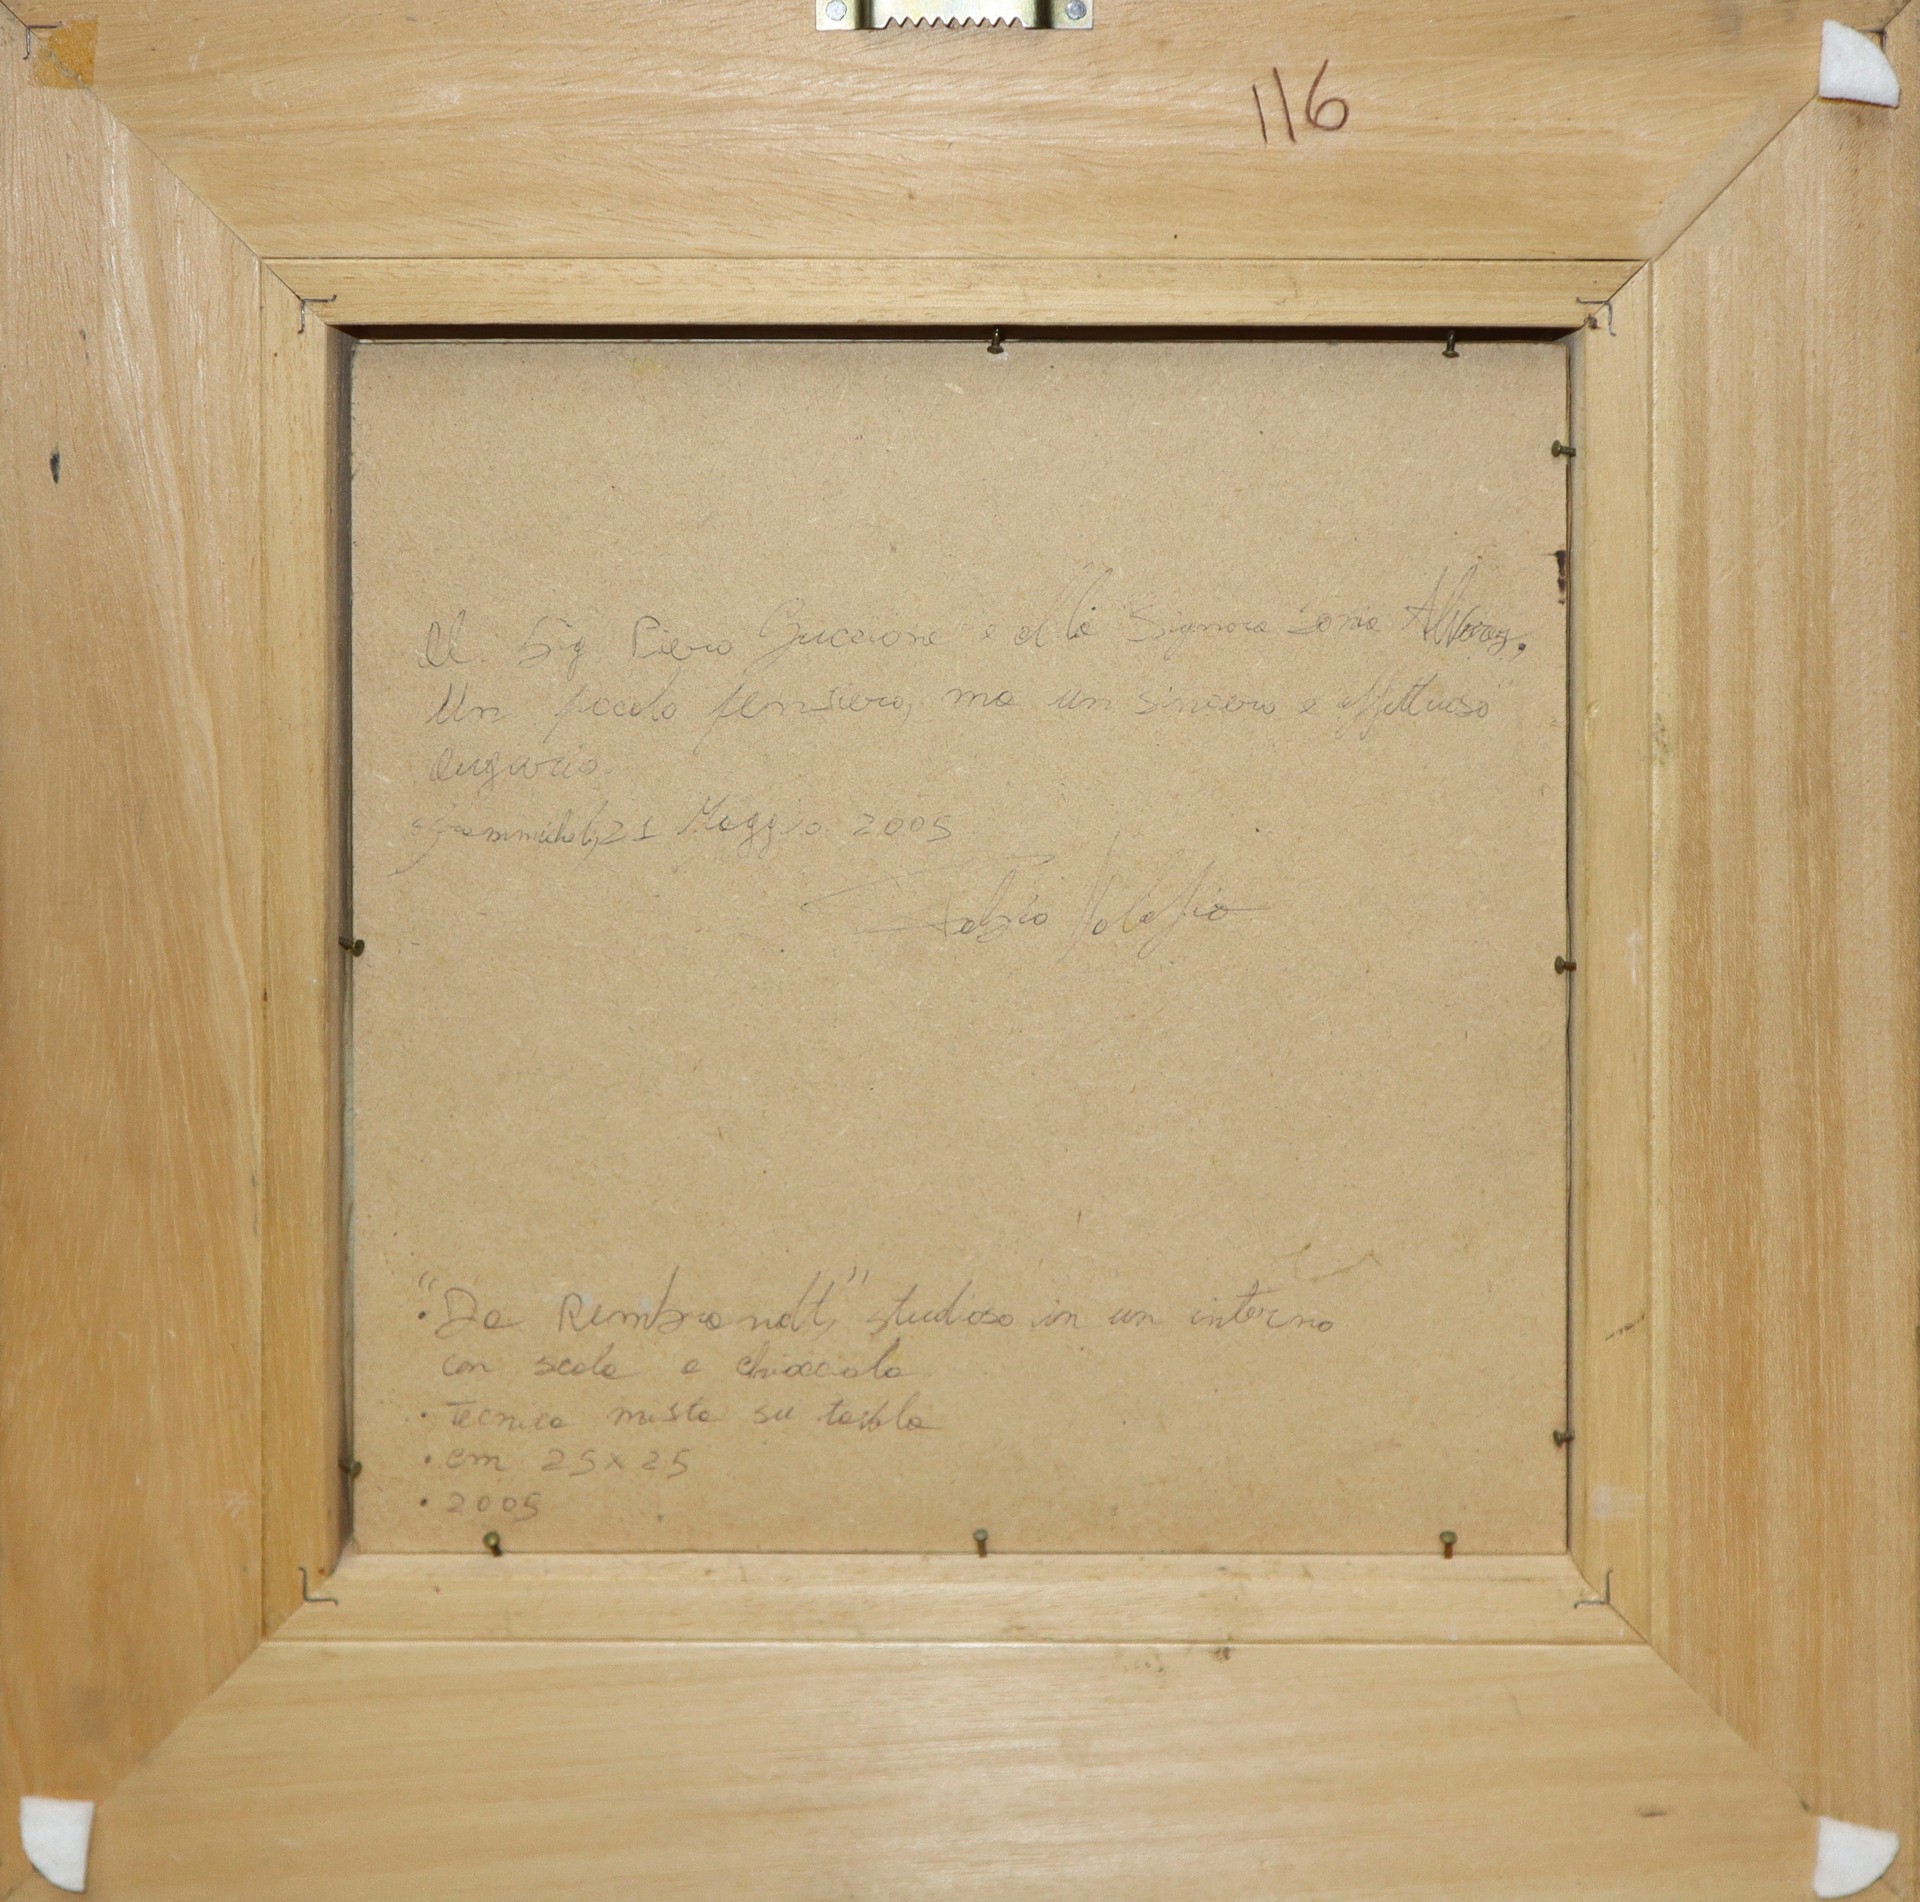 116
Al Sig Piero Guccione e alla Signora Sonia Alvarez,
Un piccolo pensiero, ma un sincero e affettuoso
augurio.
Grammichele, 21 Maggio 2005
Fabio
• "Da Rembrandt", studioso in un interno
con scala a chiocciola
• Tecnica mista su tavola
• cm 25x25
• 2005